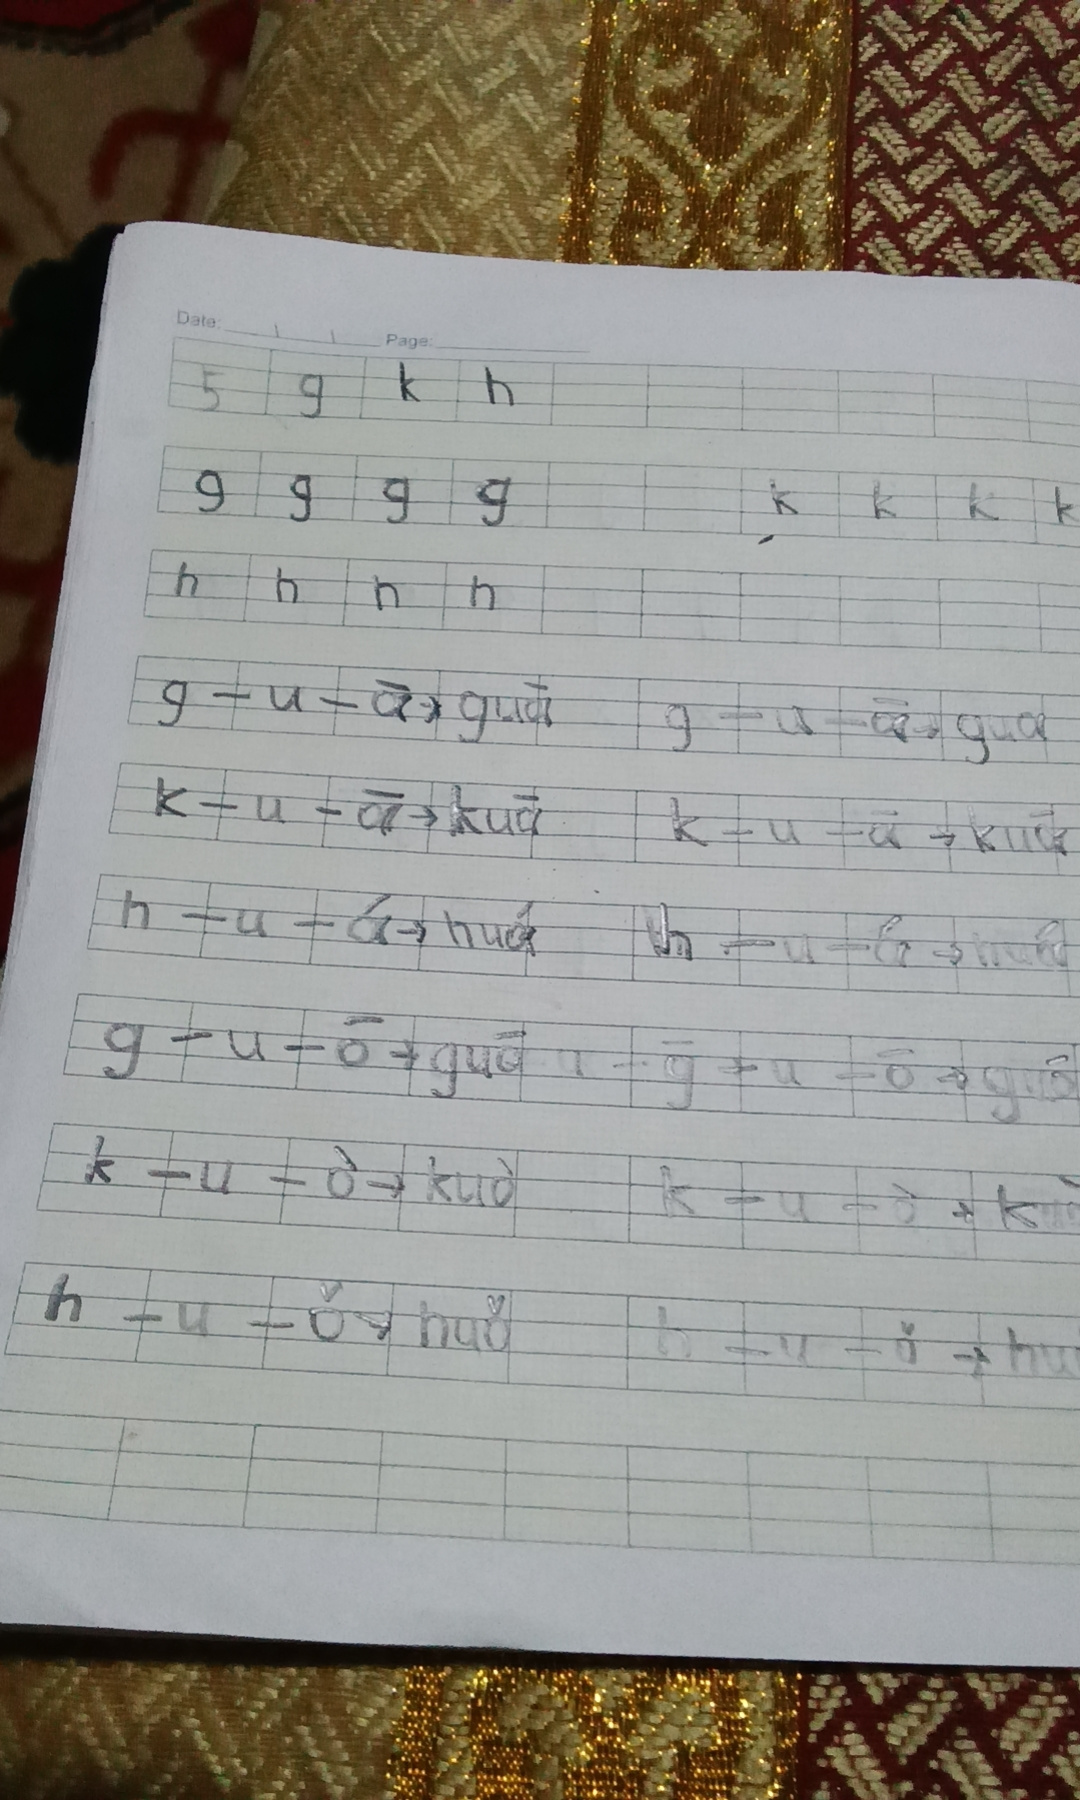 Date: Page:
5 g k h
g g g g k k k k
h h h h
g - u - ā → guā g - u - ā → gua
k - u - ā → kuā k - u - ā → kuā
h - u - á → huá h - u - á →
g - u - ō → guō u - ḡ → u - ō → guō
k - u - ò → kuò k - u - ò →
h - u - ǒ → huǒ h - u - ǒ → hu